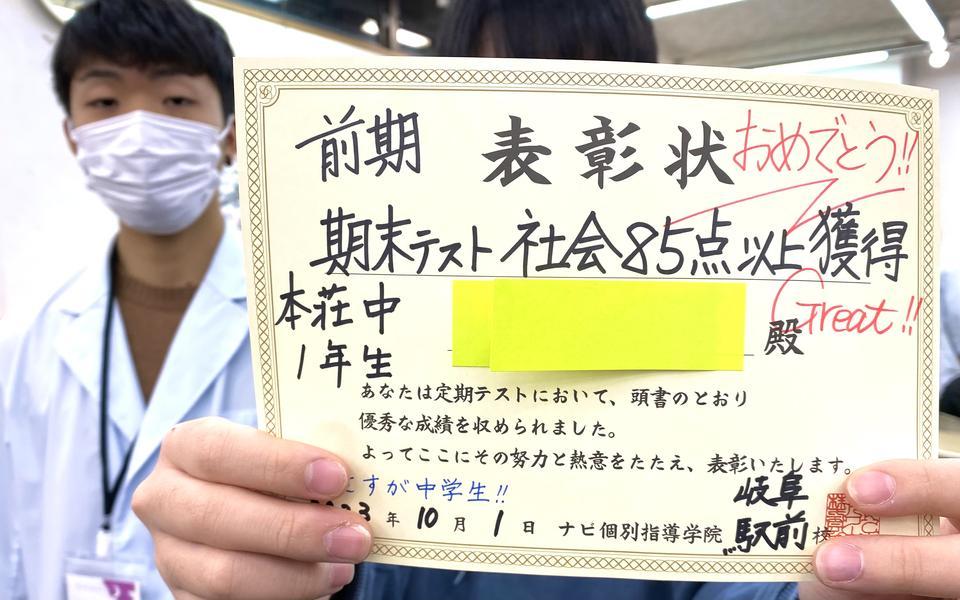 前期 表彰状 おめでとう!!
期末テスト 社会85点以上獲得
本荘中
1年生
殿 Great!!
あなたは定期テストにおいて、頭書のとおり
優秀な成績を収められました。
よってここにその努力と熱意をたたえ、表彰いたします。
すが中学生!!
3年10月1日 ナビ個別指導学院 岐阜駅前校